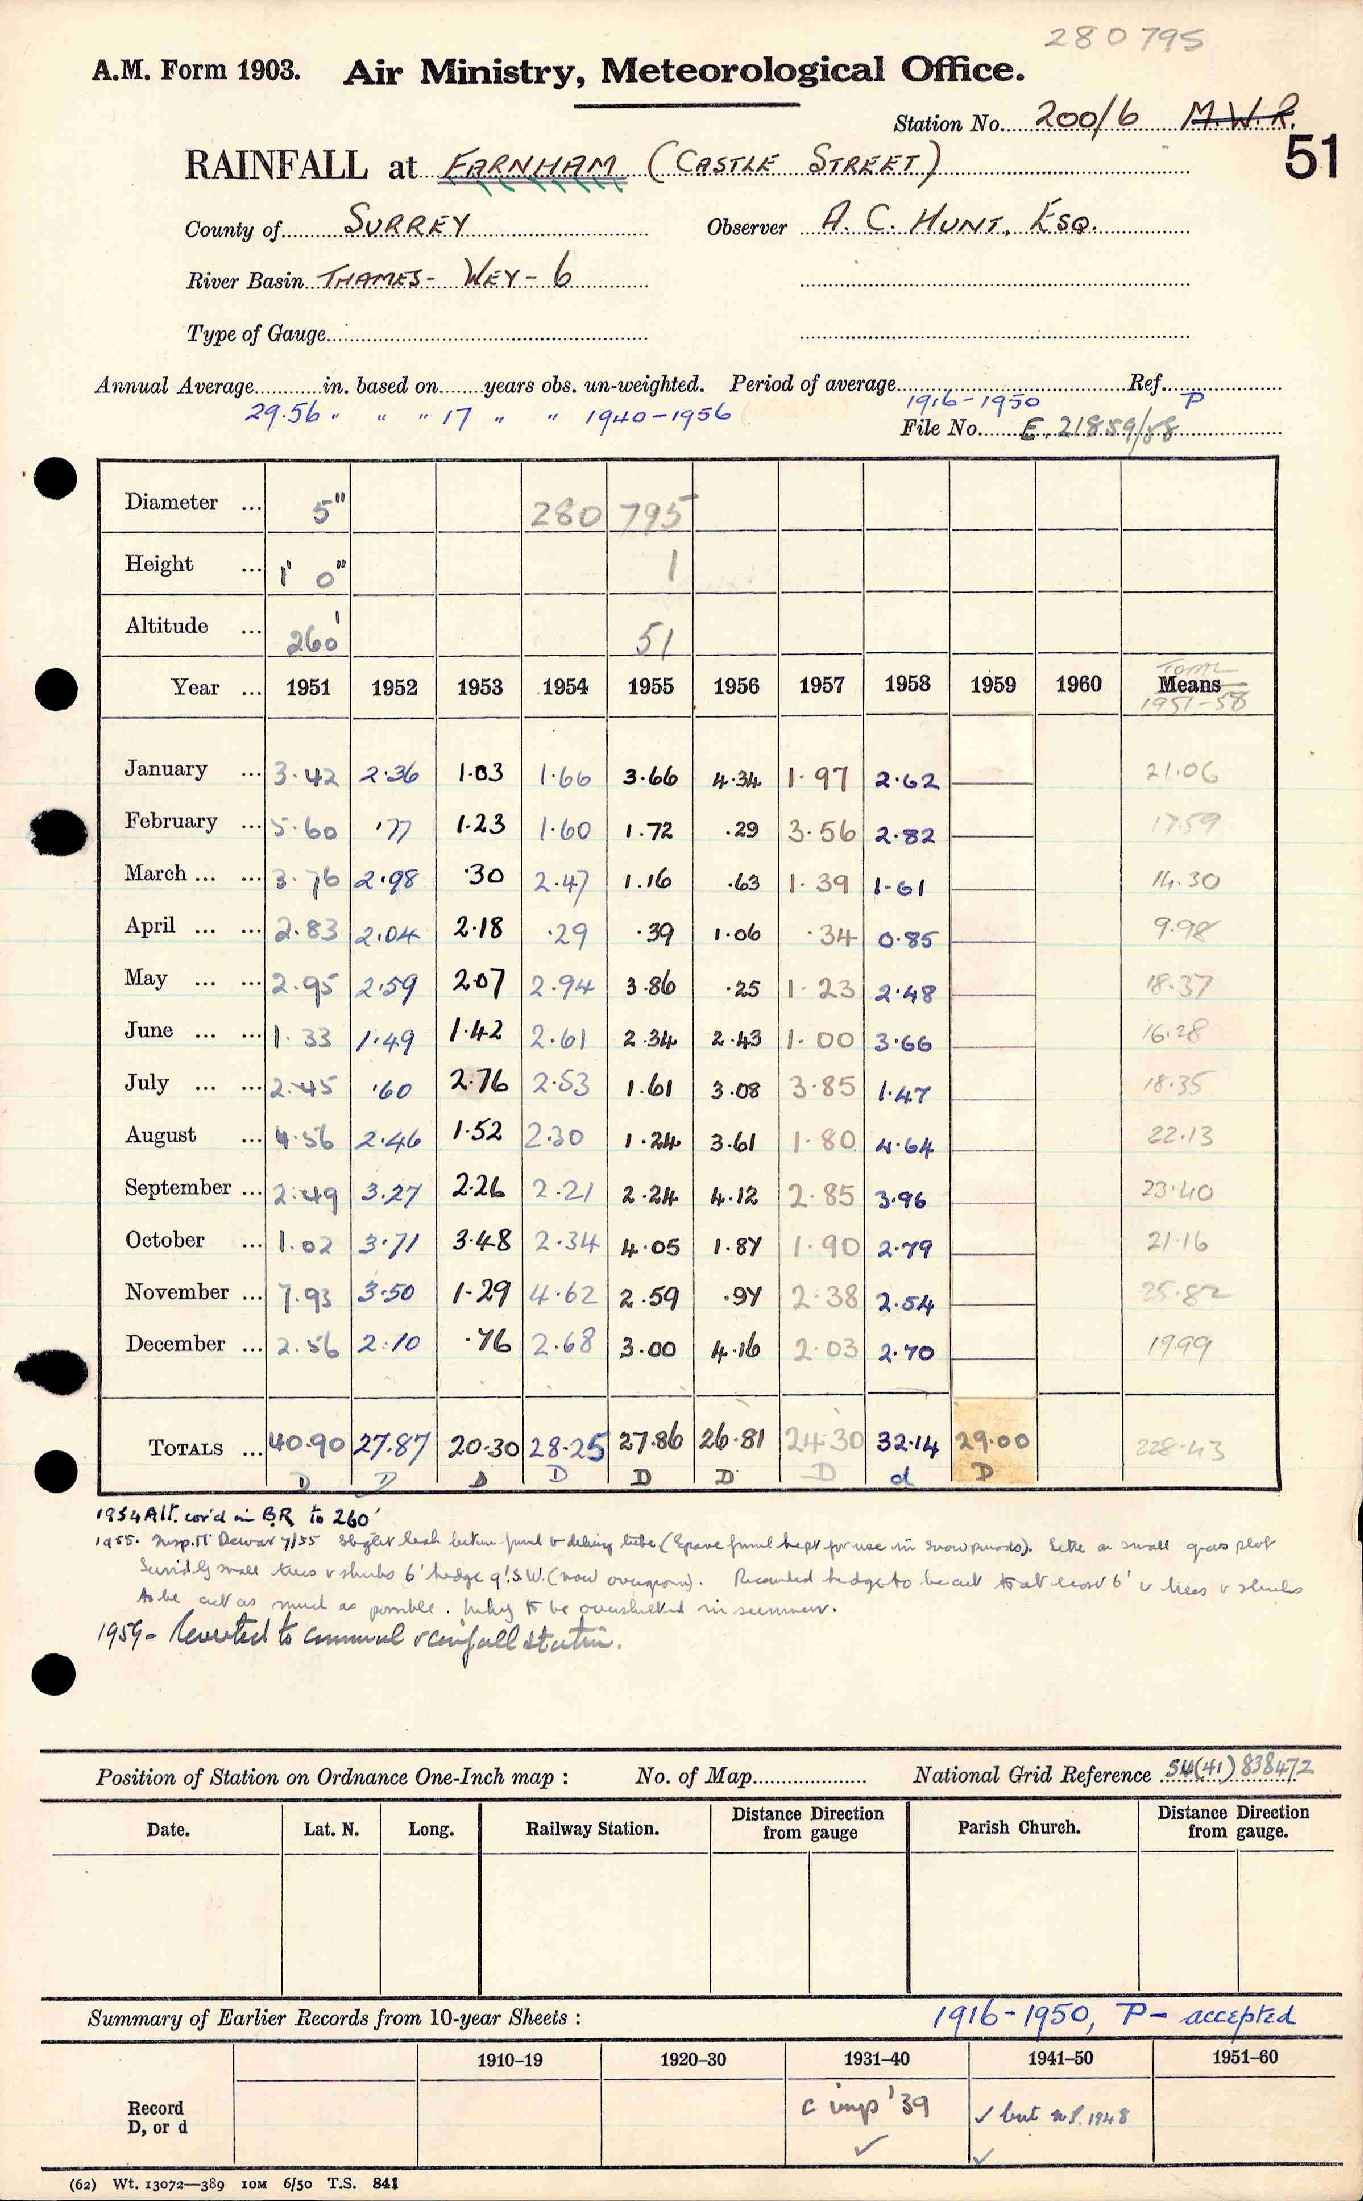 280795
A.M. Form 1903. Air Ministry, Meteorological Office.
Station No. 200/6 M.W.R.
51
RAINFALL at FARNHAM (CASTLE STREET)
County of SURREY Observer A. C. HUNT, ESQ.
River Basin THAMES - WEY - 6
Type of Gauge
Annual Average in. based on years obs. un-weighted. Period of average Ref.
29.56 " " " 17 " " 1940-1956 1916-1950 P
File No. E. 21859/58
Diameter ... 5" 280 795
Height ... 1' 0" 1
Altitude ... 260' 51
Year ... 1951 1952 1953 1954 1955 1956 1957 1958 1959 1960 Total Means 1951-58
January ... 3.42 2.36 1.03 1.66 3.66 4.34 1.97 2.62 21.06
February ... 5.60 .77 1.23 1.60 1.72 .29 3.56 2.82 17.59
March ... ... 3.76 2.98 .30 2.47 1.16 .63 1.39 1.61 14.30
April ... ... 2.83 2.04 2.18 .29 .39 1.06 .34 0.85 9.98
May ... ... 2.95 2.59 2.07 2.94 3.86 .25 1.23 2.48 18.37
June ... ... 1.33 1.49 1.42 2.61 2.34 2.43 1.00 3.66 16.28
July ... ... 2.45 .60 2.76 2.53 1.61 3.08 3.85 1.47 18.35
August ... 4.56 2.46 1.52 2.30 1.24 3.61 1.80 4.64 22.13
September ... 2.49 3.27 2.26 2.21 2.24 4.12 2.85 3.96 23.40
October ... 1.02 3.71 3.48 2.34 4.05 1.87 1.90 2.79 21.16
November ... 7.93 3.50 1.29 4.62 2.59 .97 2.38 2.54 25.82
December ... 2.56 2.10 .76 2.68 3.00 4.16 2.03 2.70 19.99
TOTALS ... 40.90 27.87 20.30 28.25 27.86 26.81 24.30 32.14 29.00 228.43
D D D D D D D d D
1954 Alt. cor'd in BR to 260'
1955. Insp. Dewar 7/55 Slight leak between funnel & delivery tube (Spare funnel kept for use in snow periods). Site on small grass plot
small trees & shrubs 6' hedge 9' S.W. (now overgrown). Recorded hedge to be cut to at least 6' & trees & shrubs
to be cut as much as possible. Likely to be oversheltered in summer.
1959 - Reverted to annual rainfall station.
Position of Station on Ordnance One-Inch map : No. of Map National Grid Reference SU(41) 838472
Date. Lat. N. Long. Railway Station. Distance Direction from gauge Parish Church. Distance Direction from gauge.
Summary of Earlier Records from 10-year Sheets : 1916-1950, P - accepted
1910–19 1920–30 1931–40 1941–50 1951–60
Record D, or d c imp '39 ✓ ✓ but 1948 ✓
(62) Wt. 13072—389 10M 6/50 T.S. 841